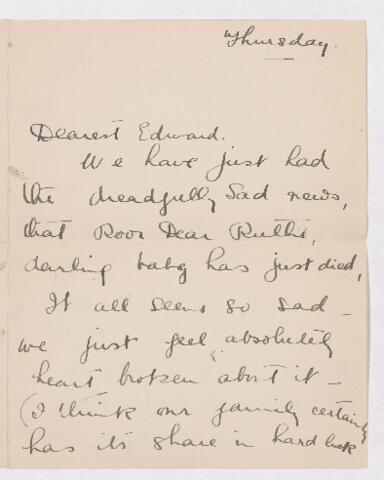 Thursday.
Dearest Edward.
We have just had
the dreadfully sad news,
that Poor Dear Ruths,
darling baby has just died,
It all seems so sad -
we just feel absolutely
heart broken about it -
(I think our family certainly
has its share in hard luck